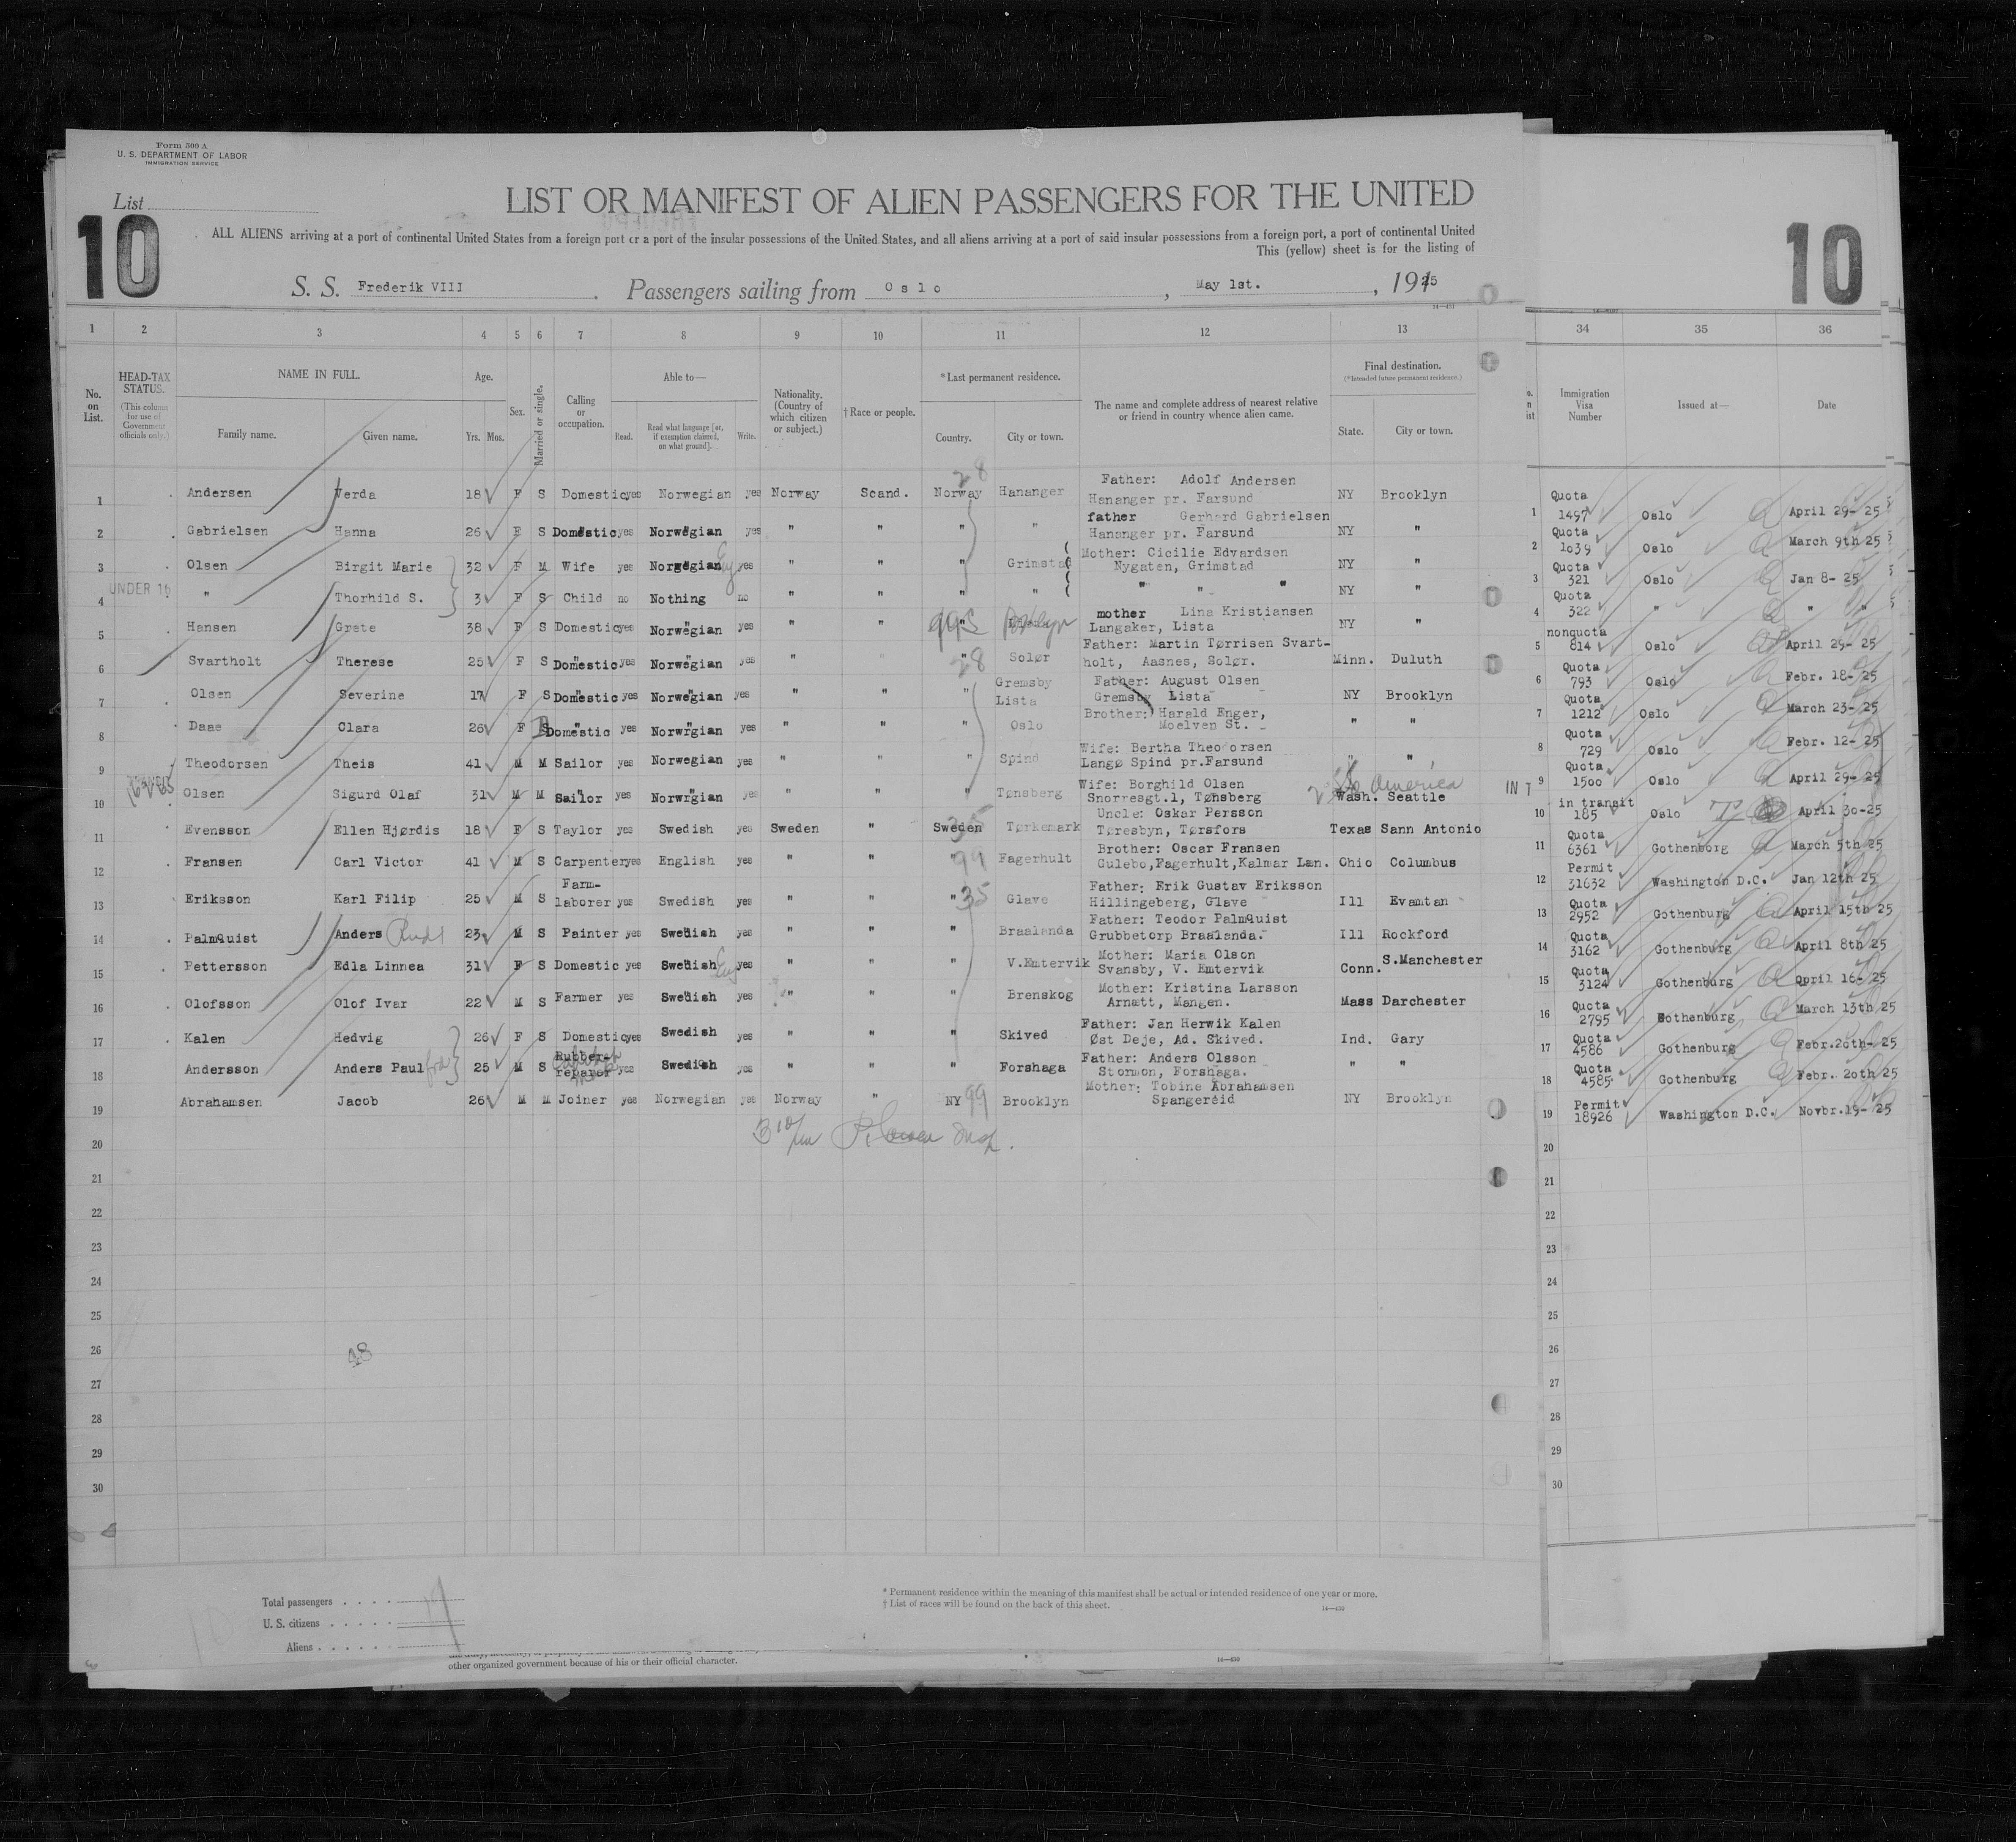 Form 500 A
U. S. DEPARTMENT OF LABOR
IMMIGRATION SERVICE
List
10
LIST OR MANIFEST OF ALIEN PASSENGERS FOR THE UNITED
ALL ALIENS arriving at a port of continental United States from a foreign port or a port of the insular possessions of the United States, and all aliens arriving at a port of said insular possessions from a foreign port, a port of continental United
This (yellow) sheet is for the listing of
S. S. Frederik VIII. Passengers sailing from Oslo, May 1st., 1925
10
1 2 3 4 5 6 7 8 9 10 11 12 13 34 35 36
No. on List.
HEAD-TAX STATUS. (This column for use of Government officials only.)
NAME IN FULL.
Family name. Given name.
Age. Yrs. Mos.
Sex.
Married or single.
Calling or occupation.
Able to—
Read. Read what language [or, if exemption claimed, on what ground]. Write.
Nationality. (Country of which citizen or subject.)
† Race or people.
* Last permanent residence.
Country. City or town.
The name and complete address of nearest relative or friend in country whence alien came.
Final destination.
(*Intended future permanent residence.)
State. City or town.
Immigration Visa Number
Issued at—
Date
1 Andersen Verda 18 F S Domestic yes Norwegian yes Norway Scand. Norway 28 Hananger Father: Adolf Andersen Hananger pr. Farsund NY Brooklyn 1 Quota 1497 Oslo April 29-25
2 Gabrielsen Hanna 26 F S Domestic yes Norwegian yes " " " " father Gerhard Gabrielsen Hananger pr. Farsund NY " 2 Quota 1039 Oslo March 9th 25
3 Olsen Birgit Marie 32 F M Wife yes Norwegian Eng yes " " " Grimstad Mother: Cicilie Edvardsen Nygaten, Grimstad NY " 3 Quota 321 Oslo Jan 8-25
4 UNDER 16 " Thorhild S. 3 F S Child no Nothing no " " " " " " " NY " 4 Quota 322 " " "
5 Hansen Grete 38 F S Domestic yes Norwegian yes " " " 99 Brooklyn mother Lina Kristiansen Langaker, Lista NY " 5 nonquota 814 Oslo April 29-25
6 Svartholt Therese 25 F S Domestic yes Norwegian yes " " " 28 Solør Father: Martin Tørrisen Svartholt, Aasnes, Solør. Minn. Duluth 6 Quota 793 Oslo Febr. 18-25
7 Olsen Severine 17 F S Domestic yes Norwegian yes " " " Gremsby Lista Father: August Olsen Gremsby Lista NY Brooklyn 7 Quota 1212 Oslo March 23-25
8 Daae Clara 26 F S Domestic yes Norwrgian yes " " " Oslo Brother: Harald Enger, Moelven St. " " 8 Quota 729 Oslo Febr. 12-25
9 Theodorsen Theis 41 M M Sailor yes Norwegian yes " " " Spind Wife: Bertha Theodorsen Langø Spind pr.Farsund " " 9 Quota 1500 Oslo April 29-25
10 Olsen Sigurd Olaf 31 M M Sailor yes Norwrgian yes " " " Tønsberg Wife: Borghild Olsen Snorresgt.1, Tønsberg Wash. Seattle America IN T 10 in transit 185 Oslo April 30-25
11 Evensson Ellen Hjørdis 18 F S Taylor yes Swedish yes Sweden " Sweden 35 Tørkemark Uncle: Oskar Persson Tøresbyn, Tørsfors Texas Sann Antonio 11 Quota 6361 Gothenborg March 5th 25
12 Fransen Carl Victor 41 M S Carpenter yes English yes " " " 99 Fagerhult Brother: Oscar Fransen Gulebo,Fagerhult,Kalmar Læn. Ohio Columbus 12 Permit 31632 Washington D.C. Jan 12th 25
13 Eriksson Karl Filip 25 M S Farm-laborer yes Swedish yes " " " 35 Glave Father: Erik Gustav Eriksson Hillingeberg, Glave Ill Evamtan 13 Quota 2952 Gothenburg April 15th 25
14 PalmQuist Anders 23 M S Painter yes Swedish yes " " " Braalanda Father: Teodor PalmQuist Grubbetorp Braalanda. Ill Rockford 14 Quota 3162 Gothenburg April 8th 25
15 Pettersson Edla Linnea 31 F S Domestic yes Swedish Eng yes " " " V.Emtervik Mother: Maria Olson Svansby, V. Emtervik Conn. S.Manchester 15 Quota 3124 Gothenburg Qpril 16-25
16 Olofsson Olof Ivar 22 M S Farmer yes Swedish yes " " " Brenskog Mother: Kristina Larsson Arnætt, Mangen. Mass Darchester 16 Quota 2795 Gothenburg March 13th 25
17 Kalen Hedvig 26 F S Domestic yes Swedish yes " " " Skived Father: Jan Herwik Kalen Øst Deje, Ad. Skived. Ind. Gary 17 Quota 4586 Gothenburg Febr.20th-25
18 Andersson Anders Paul 25 M S Rubber-reparer yes Swedish yes " " " Forshaga Father: Anders Olsson Stormon, Forshaga. " " 18 Quota 4585 Gothenburg Febr. 20th 25
19 Abrahamsen Jacob 26 M M Joiner yes Norwegian yes Norway " NY 99 Brooklyn Mother: Tobine Abrahamsen Spangereid NY Brooklyn 19 Permit 18926 Washington D.C. Novbr.19-25
20 20
21 21
22 22
23 23
24 24
25 25
26 48 26
27 27
28 28
29 29
30 30
Total passengers
U. S. citizens
Aliens
19
* Permanent residence within the meaning of this manifest shall be actual or intended residence of one year or more.
† List of races will be found on the back of this sheet.
14—430
other organized government because of his or their official character.
14—430